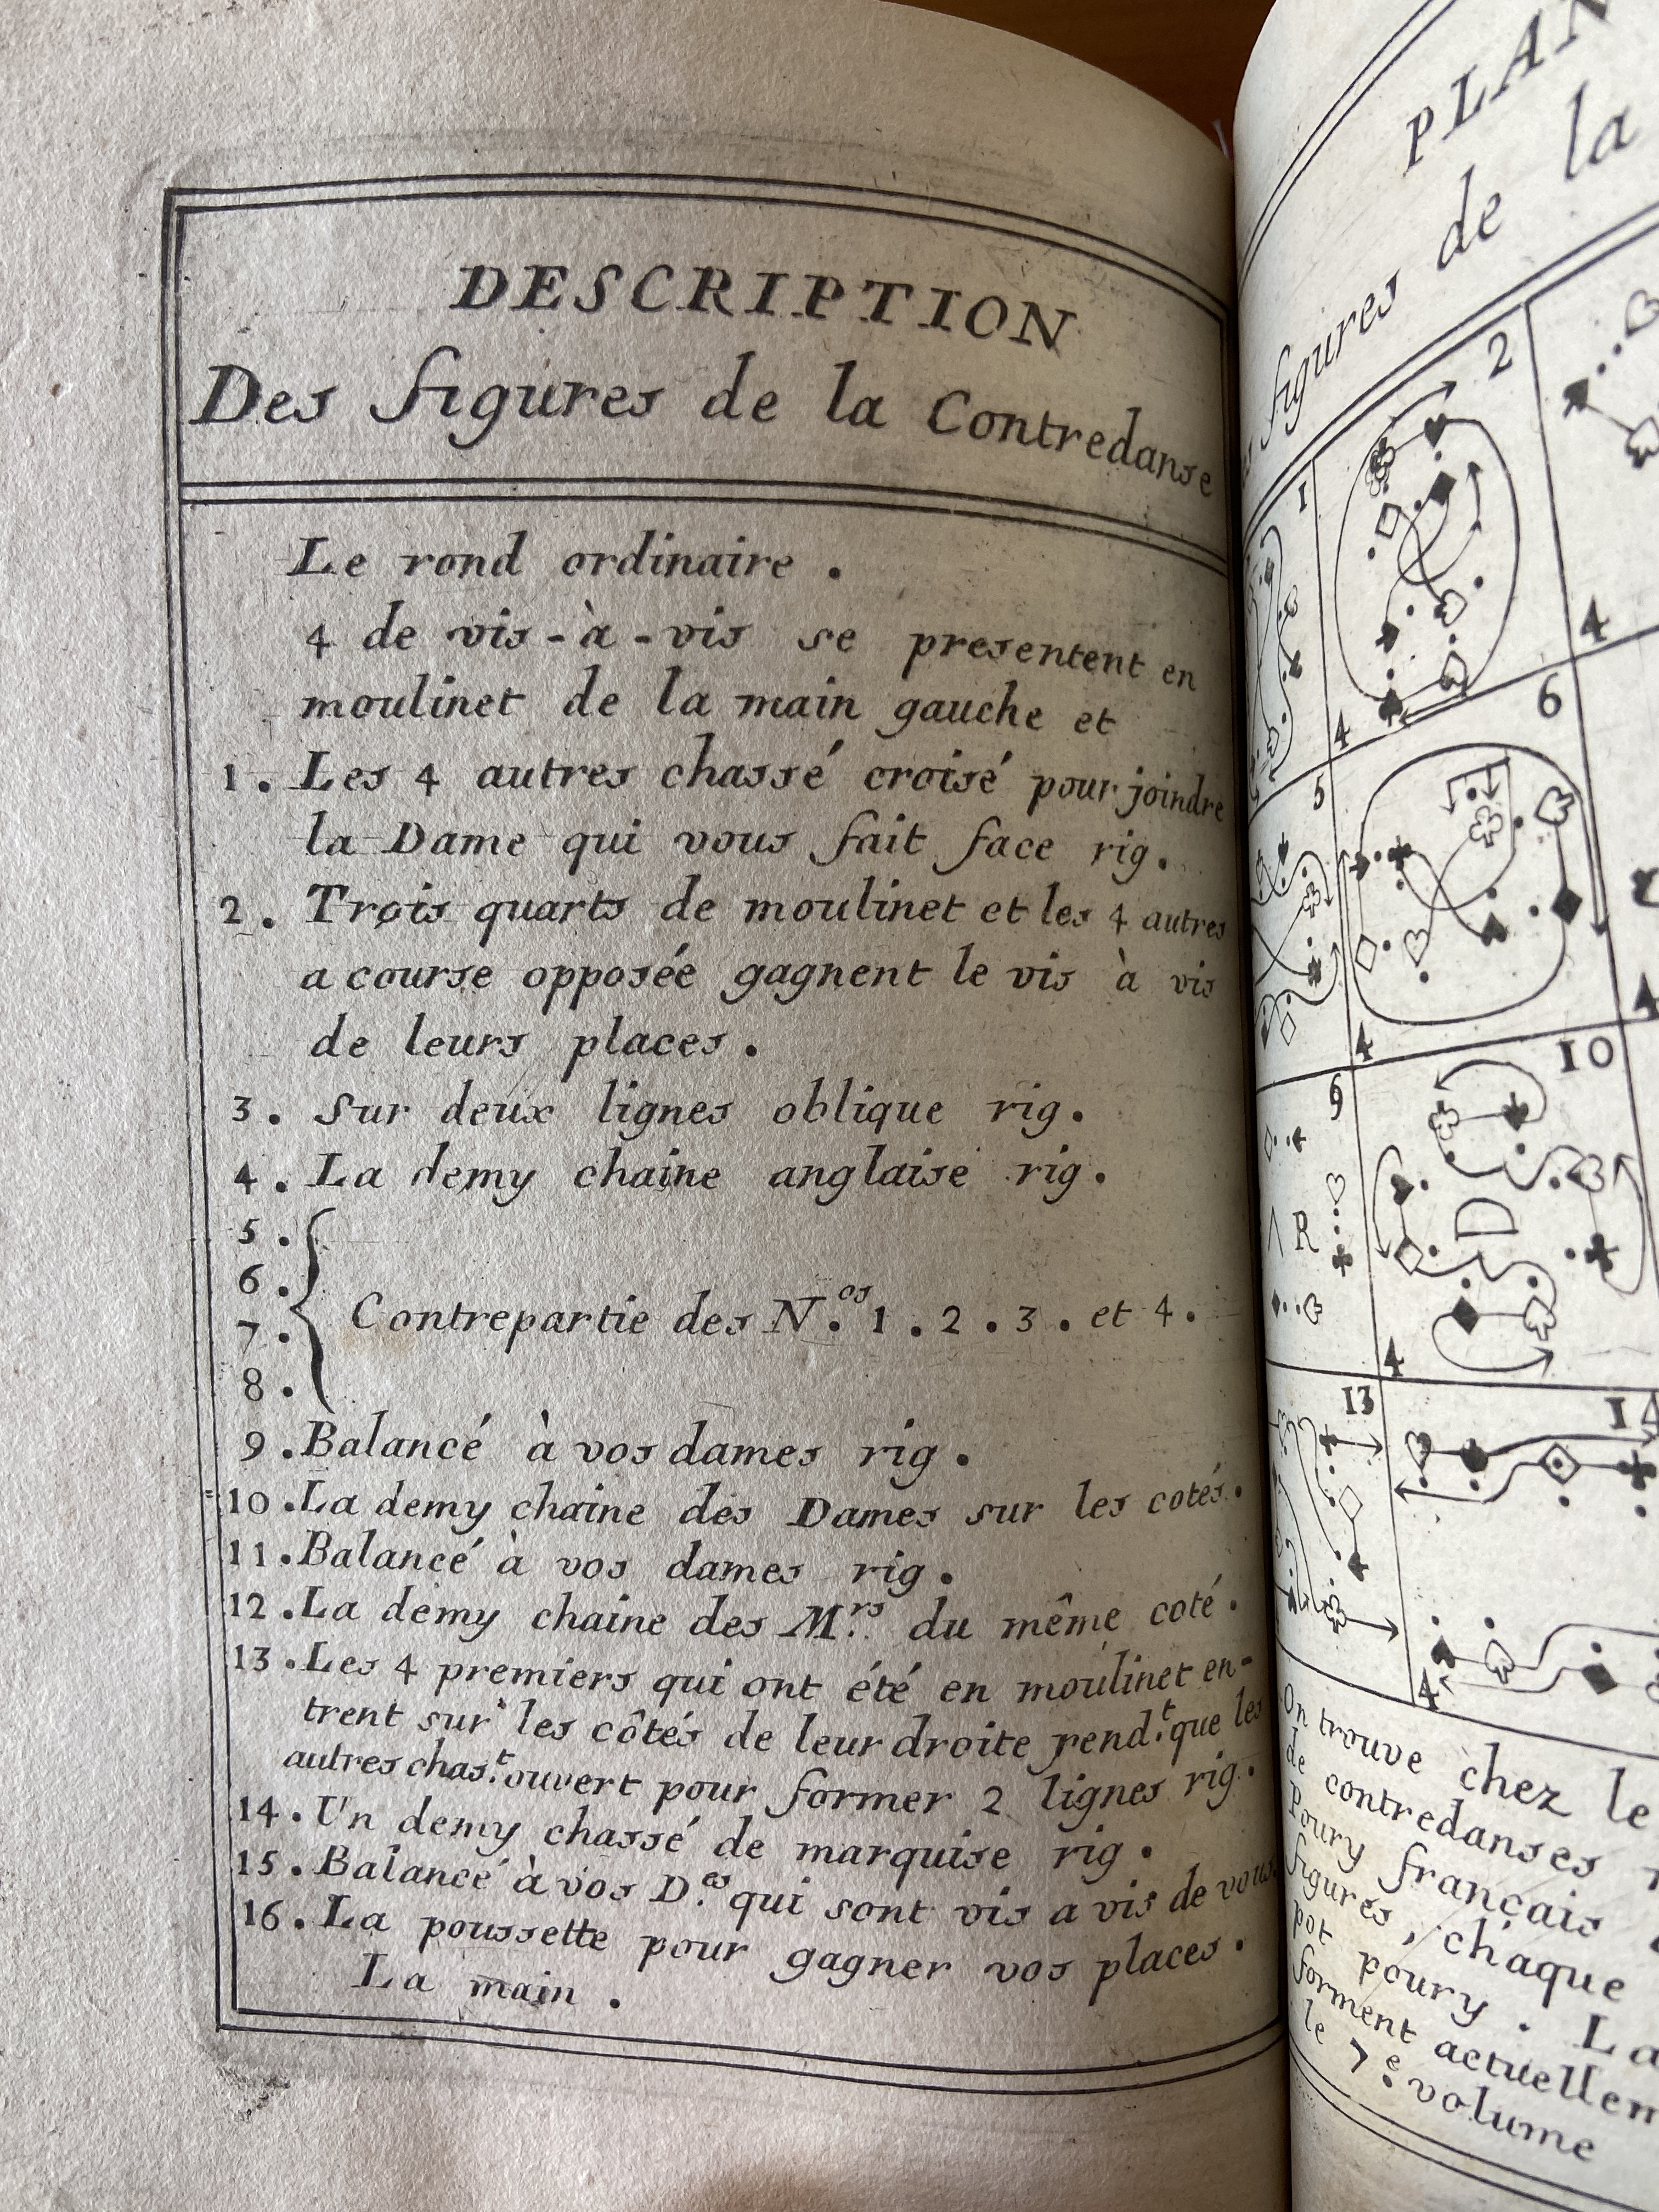 DESCRIPTION
Des figures de la Contredanse
Le rond ordinaire .
4 de vis-à-vis se presentent en
moulinet de la main gauche et
1. Les 4 autres chassé croisé pour joindre
la Dame qui vous fait face rig.
2. Trois quarts de moulinet et les 4 autres
a course opposée gagnent le vis à vis
de leurs places .
3. Sur deux lignes oblique rig.
4. La demy chaine anglaise rig.
5.
6.
7.
8.
Contrepartie des N.os 1 . 2 . 3 . et 4 .
9. Balancé à vos dames rig.
10. La demy chaine des Dames sur les cotés.
11. Balancé à vos dames rig.
12. La demy chaine des M.rs du même coté.
13. Les 4 premiers qui ont été en moulinet en-
trent sur les côtés de leur droite pend.t que les
autres chas.t ouvert pour former 2 lignes rig.
14. Un demy chassé de marquise rig.
15. Balancé à vos D.es qui sont vis a vis de vous
16. La poussette pour gagner vos places.
La main .
de la
figures
1
2
4
4
5
6
4
4
9
10
R
D
4
13
14
4
On trouve chez le
de contredanses
Poury français
figures, chaque
pot poury . La
forment
le 7.e volume